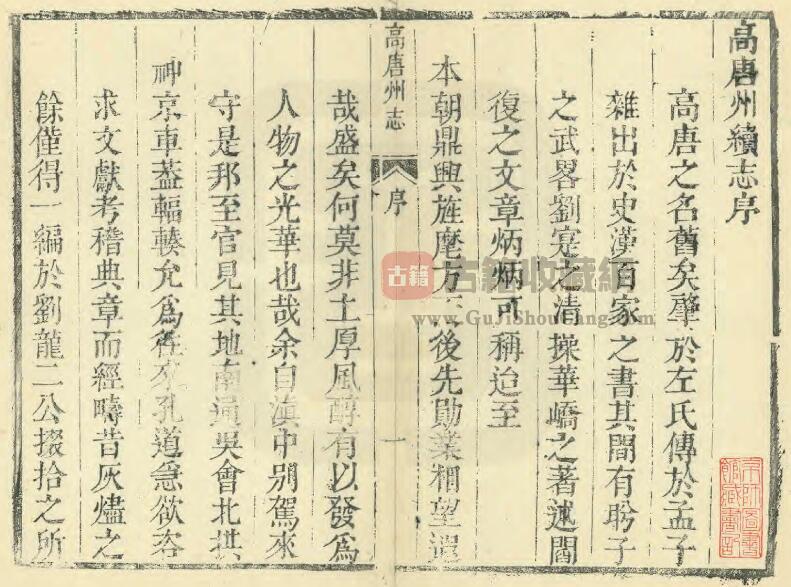 高唐州續志序
高唐之名舊矣肇於左氏傳於孟子
雜出於史漢百家之書其間有肹子
之武畧劉寔之清操華嶠之著述閻
復之文章炳炳可稱迨至
本朝鼎興旌麾方後先勛業相望
高唐州志
序
一
哉盛矣何莫非土厚風醇有以發爲
人物之光華也哉余自滇中別駕來
守是邦至官見其地南通吳會北拱
神京車蓋輻輳允爲往來孔道急欲咨
求文獻考稽典章而經疇昔灰燼之
餘僅得一編於劉龍二公掇拾之所
古籍
古籍收藏網
www.GuJiShouCang.com